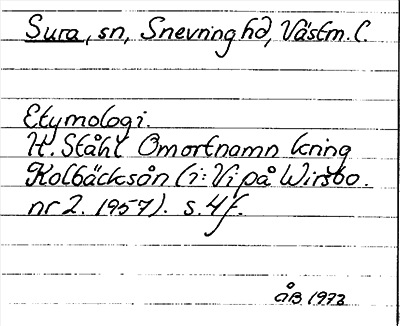 Sura, sn, Snevringe hd, Västm. l.
Etymologi.
H. Ståhl Om ortnamn kring
Kolbäcksån (i: Vi på Wirsbo.
nr 2. 1957). s. 4 f.
ÅB 1973